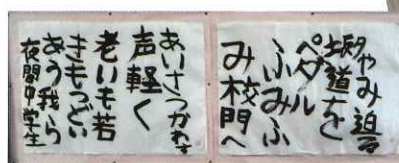 夕やみ迫る
坂道を
ペダル
ふみふ
み校門へ
あいさつかわす
声軽く
老いも若
きもつどい
あう我ら
夜間中学生